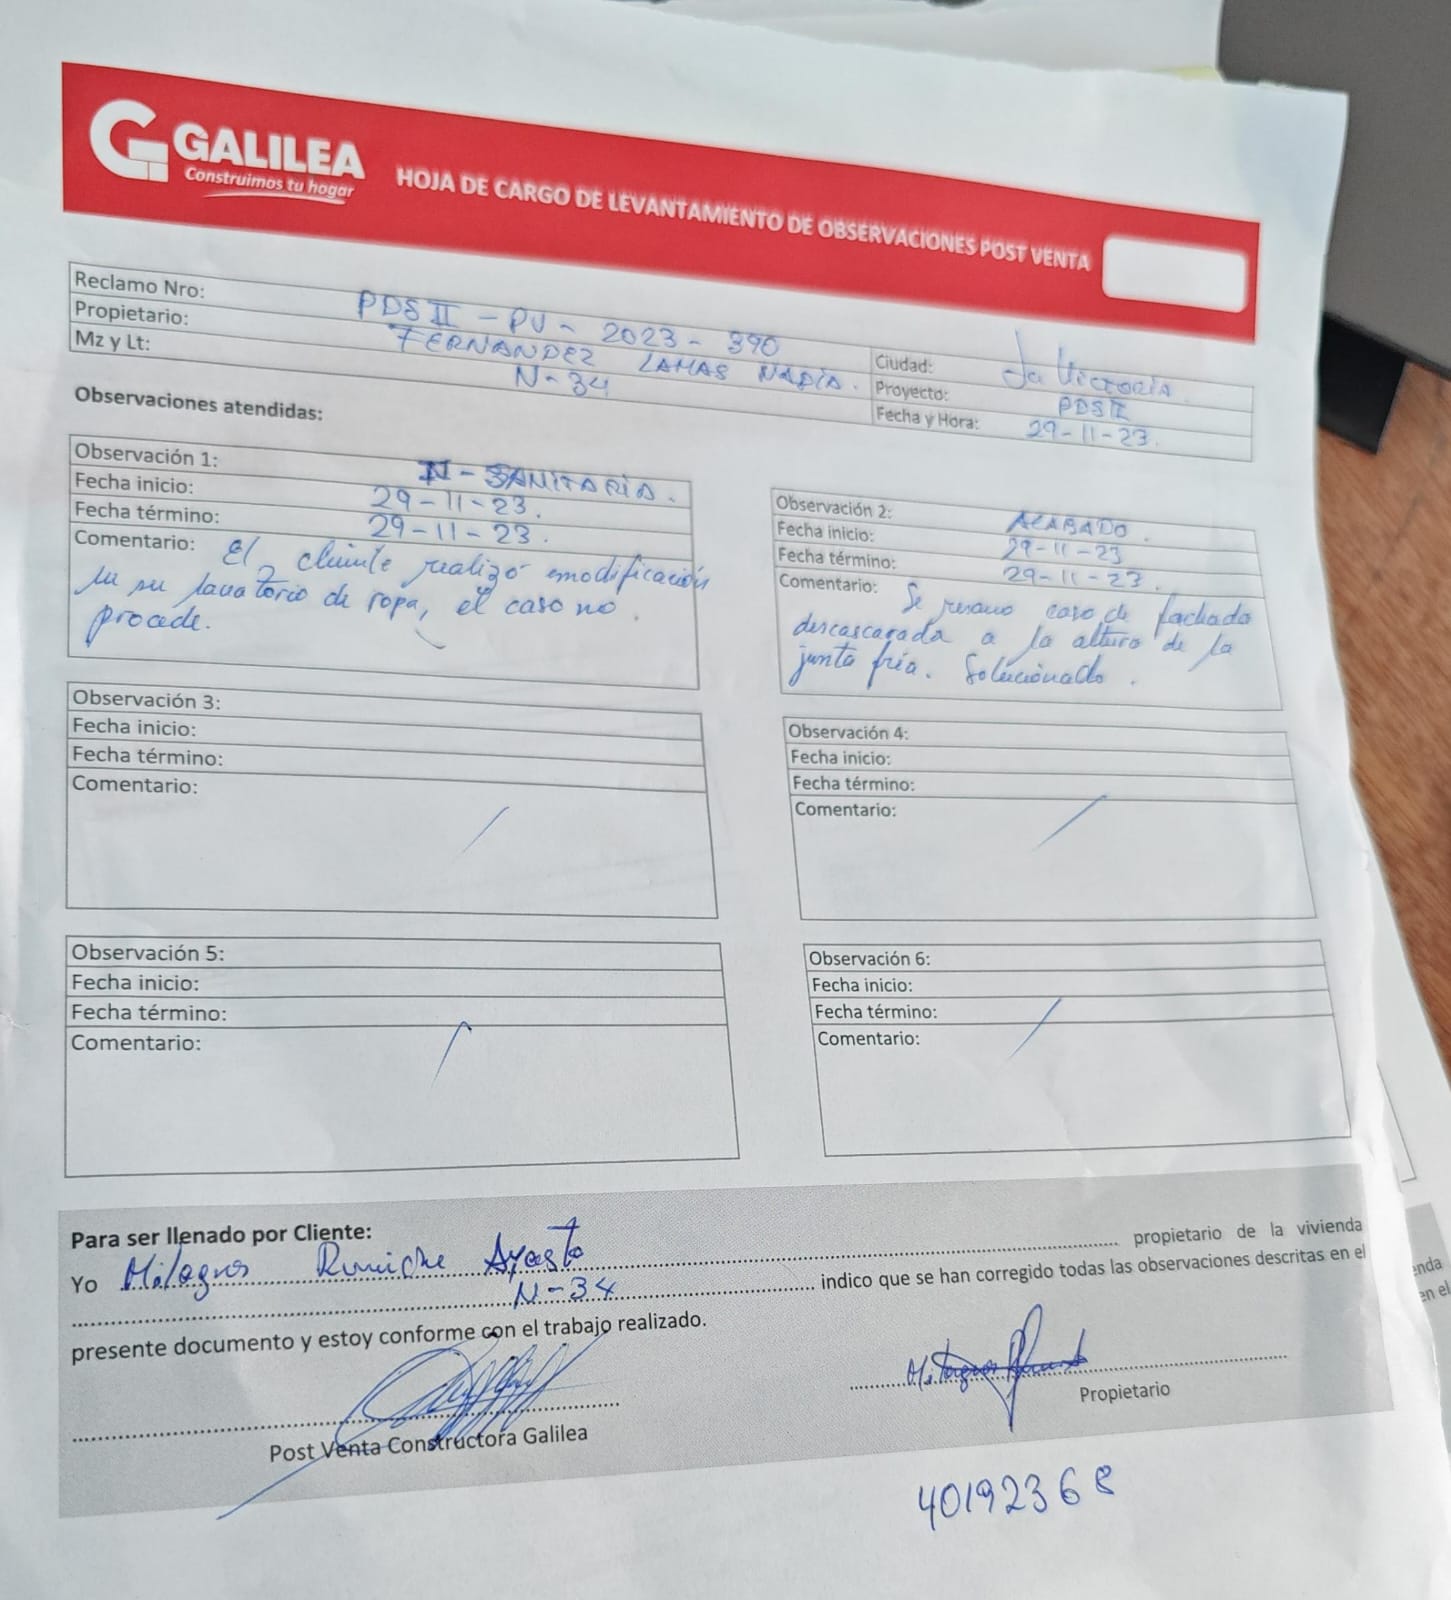 GALILEA
Construimos tu hogar
HOJA DE CARGO DE LEVANTAMIENTO DE OBSERVACIONES POST VENTA
Reclamo Nro: PDS II - PV - 2023 - 390
Propietario: FERNANDEZ LAMAS NADIA.
Mz y Lt: N-34
Ciudad: La Victoria
Proyecto: PDSII
Fecha y Hora: 29-11-23.
Observaciones atendidas:
Observación 1: II - SANITARIA.
Fecha inicio: 29-11-23.
Fecha término: 29-11-23.
Comentario: El cliente realizó modificación
en su lavatorio de ropa, el caso no
procede.
Observación 2: ACABADO.
Fecha inicio: 29-11-23
Fecha término: 29-11-23.
Comentario: Se resano caso de fachada
descascarada a la altura de la
junta fría. Solucionado.
Observación 3:
Fecha inicio:
Fecha término:
Comentario:
Observación 4:
Fecha inicio:
Fecha término:
Comentario:
Observación 5:
Fecha inicio:
Fecha término:
Comentario:
Observación 6:
Fecha inicio:
Fecha término:
Comentario:
Para ser llenado por Cliente:
Yo Milagros Ruiniche Ayasta propietario de la vivienda
N-34 indico que se han corregido todas las observaciones descritas en el
presente documento y estoy conforme con el trabajo realizado.
Post Venta Constructora Galilea
Milagros
Propietario
40192368
enda
en el